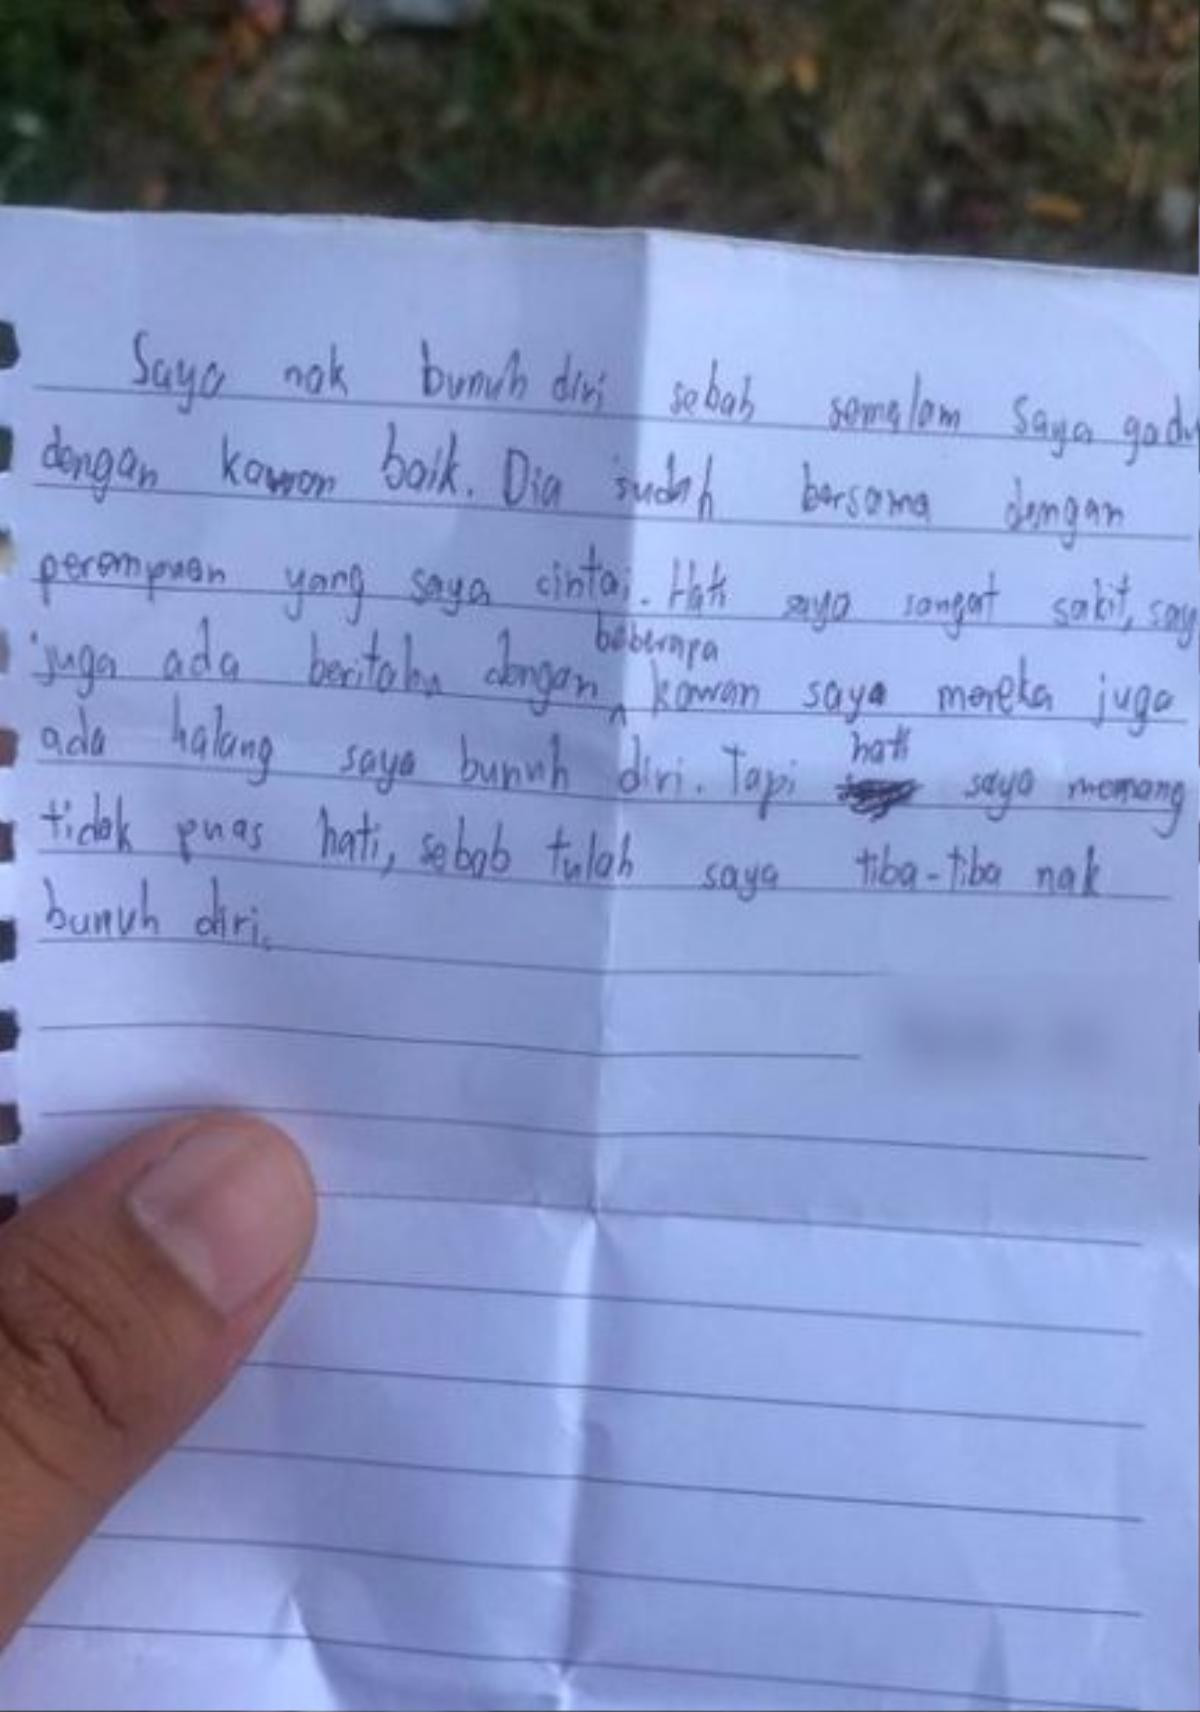 Saya nak bunuh diri sebab semalam saya gadu
dengan kawan baik. Dia sudah bersama dengan
perempuan yang saya cintai. Hati saya sangat sakit, say
beberapa
juga ada beritahu dengan kawan saya mereka juga
hati
ada halang saya bunuh diri. Tapi saya memang
tidak puas hati, sebab tulah saya tiba-tiba nak
bunuh diri.